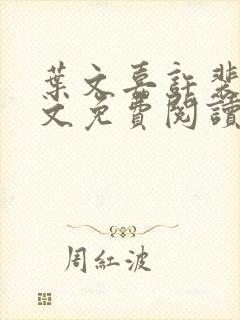 葉文喜許裴
文免費閱讀
周紅波